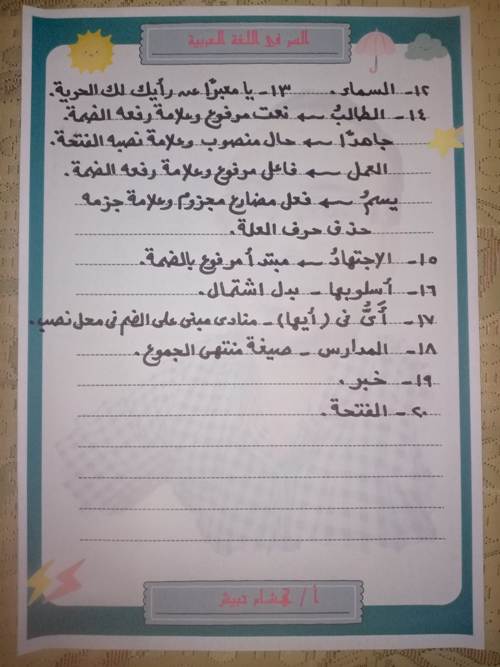 السر في اللغة العربية
١٢- السماء. ١٣- يا معبرًا عن رأيك لك الحرية.
١٤- الطالبُ ← نعت مرفوع وعلامة رفعه الضمة.
جاهدًا ← حال منصوب وعلامة نصبه الفتحة.
العمل ← فاعل مرفوع وعلامة رفعه الضمة.
يسمُ ← فعل مضارع مجزوم وعلامة جزمه
حذف حرف العلة.
١٥- الإجتهادُ ← مبتدأ مرفوع بالضمة.
١٦- أسلوبها - بدل اشتمال.
١٧- أَىُّ فى (أيها) - منادى مبنى على الضم فى محل نصب.
١٨- المدارس - صيغة منتهى الجموع.
١٩- خبر.
٢٠- الفتحة.
أ / هشام